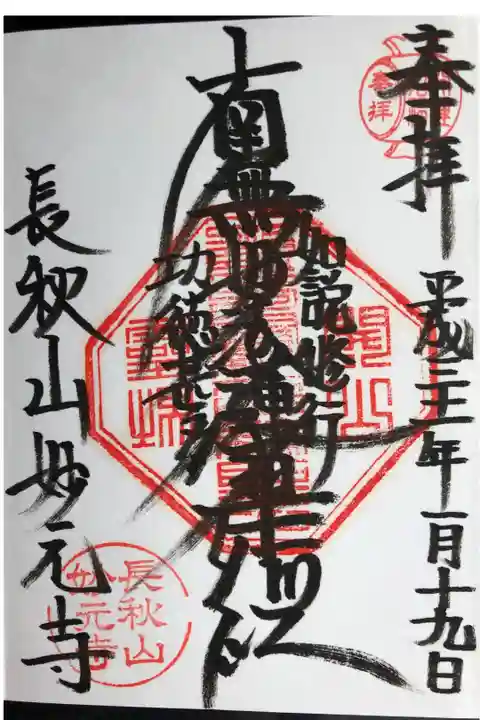 奉拝
平成三十一年一月十九日
如説修行
南無妙法蓮華経
功徳甚多
長秋山妙元寺
奉拝
長秋山
妙元寺